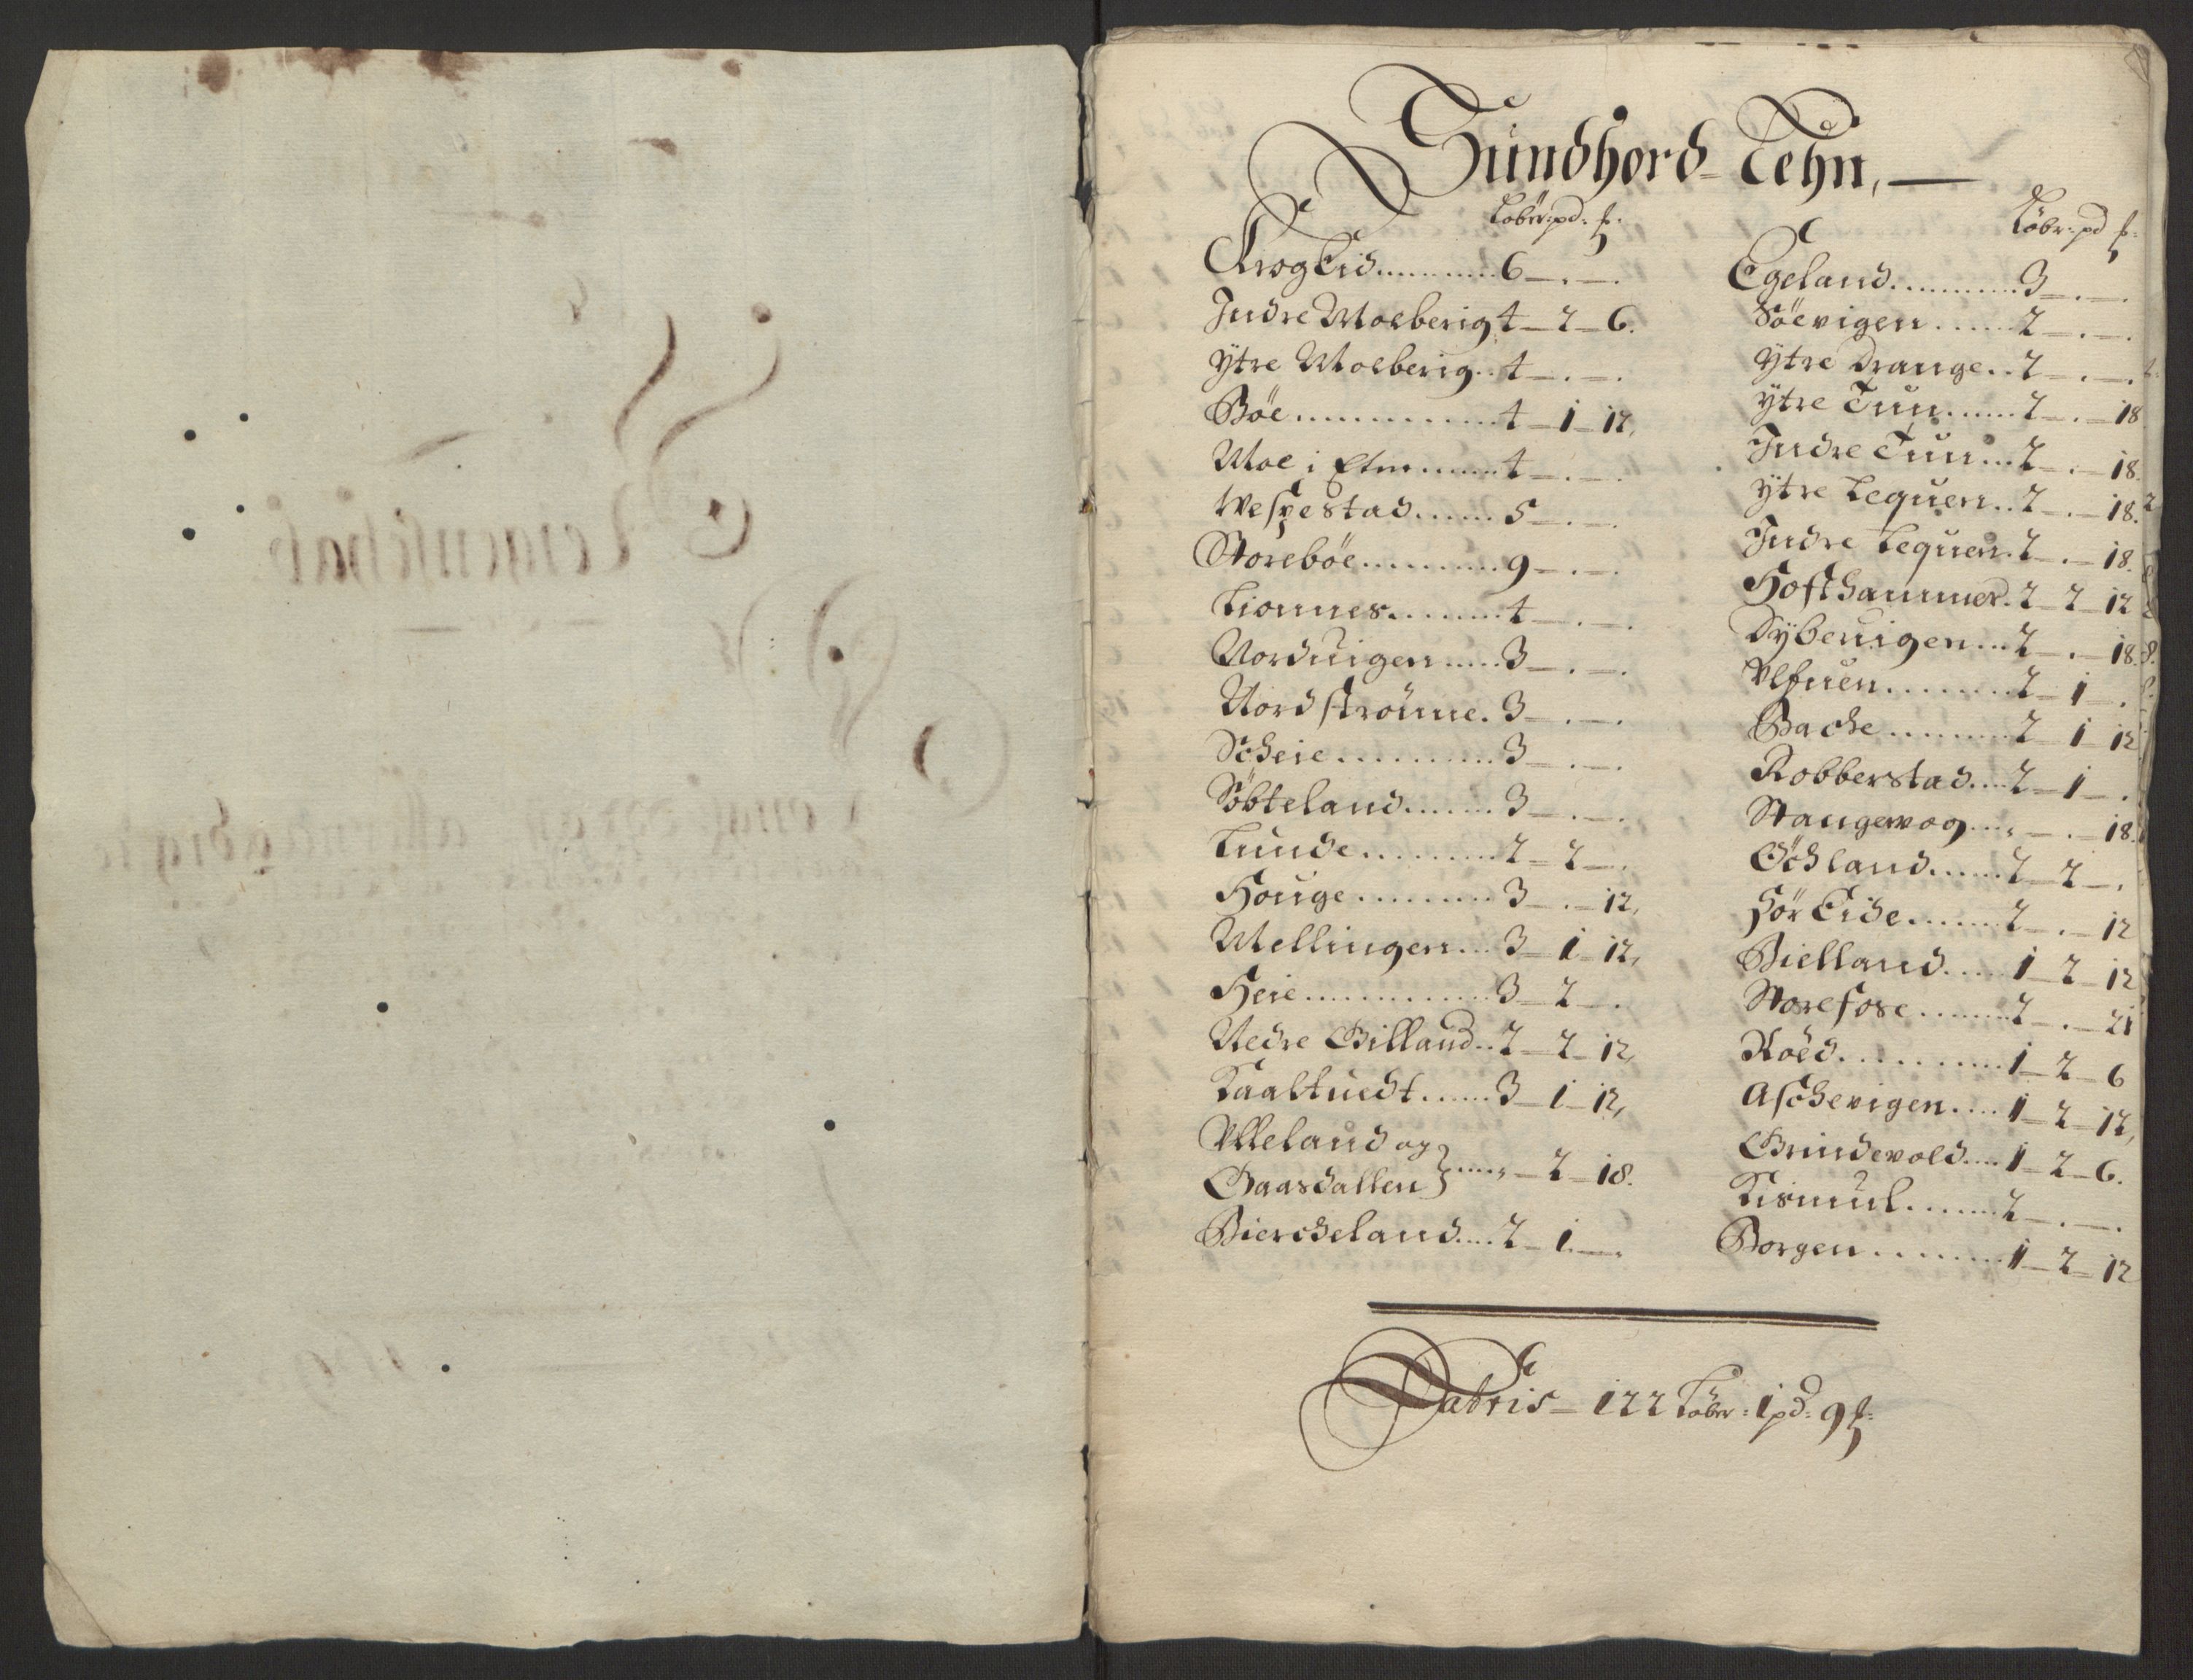 Sundhord-Lehn,
Løber: pd: f:
Krog Eid..........6 — . — .
Indre Moeberig 4 — 2 — 6.
ÿtre Moeberig..4 — . — .
Bøe.............4 — 1 — 12,
Moe i Etne......4 — . — .
Wespestad.......5 — . — .
Storebøe..........9 — . — .
Tionnes.........4 — . — .
Norduigen.....3 — . — .
Nordstrømme. 3 — . — .
Scheie...........3 — . — .
Søbteland.......3 — . — .
Lunde..........2 — 2 — .
Houge.........3 — . — 12,
Mellingen....3 — 1 — 12,
Heie.............3 — 2 — .
Nedre Gilland..2 — 2 — 12,
Taaltuedt......3 — 1 — 12,
Ulleland og
Gaasdallen } ....., — 2 — 18.
Bierckeland....2 — 1 — .
Løbr: pd f:
Egeland...........3 — . — .
Søevigen......2 — . — .
ÿtre Drange..2 — . — .
ÿtre Tun......2 — . — 18
Indre Tun...2 — . — 18.
ÿtre Tequen..2 — . — 18.
Indre Tequen.2 — . — 18.
Hofthammer.2 — 2 — 12
Dÿbeuigen...2 — . — 18.
Ulfuen.........2 — 1 — .
Backe.........2 — 1 — 12
Robberstad...2 — 1 — .
Stangewog...., — . — 18.
Øckland......2 — 2 — .
Sør Eide.......2 — . — 12
Bielland.....1 — 2 — 12
Storefose.......2 — . — 21
Røed...........1 — 2 — 6
Aschevigen....1 — 2 — 12,
Grindevold....1 — 2 — 6.
Kismul.......2 — . — .
Borgen.........1 — 2 — 12
Latris — 122 Løber: 1 pd: 9 f: